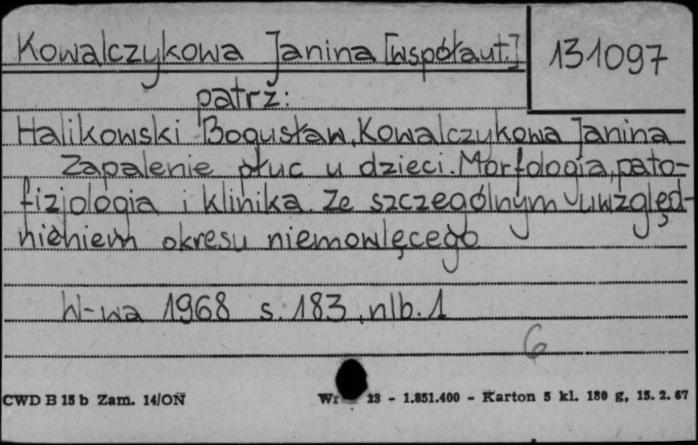 Kowalczykowa Janina [współaut.] 131097
patrz:
Halikowski Bogusław, Kowalczykowa Janina
Zapalenie płuc u dzieci. Morfologia, pato-
fizjologia i klinika. Ze szczególnym uwzględ-
nieniem okresu niemowlęcego
W-wa 1968 s. 183, nlb. 1
6
CWD B 15 b Zam. 14/ON Wr 23 - 1.851.400 - Karton 5 kl. 180 g, 15. 2. 67